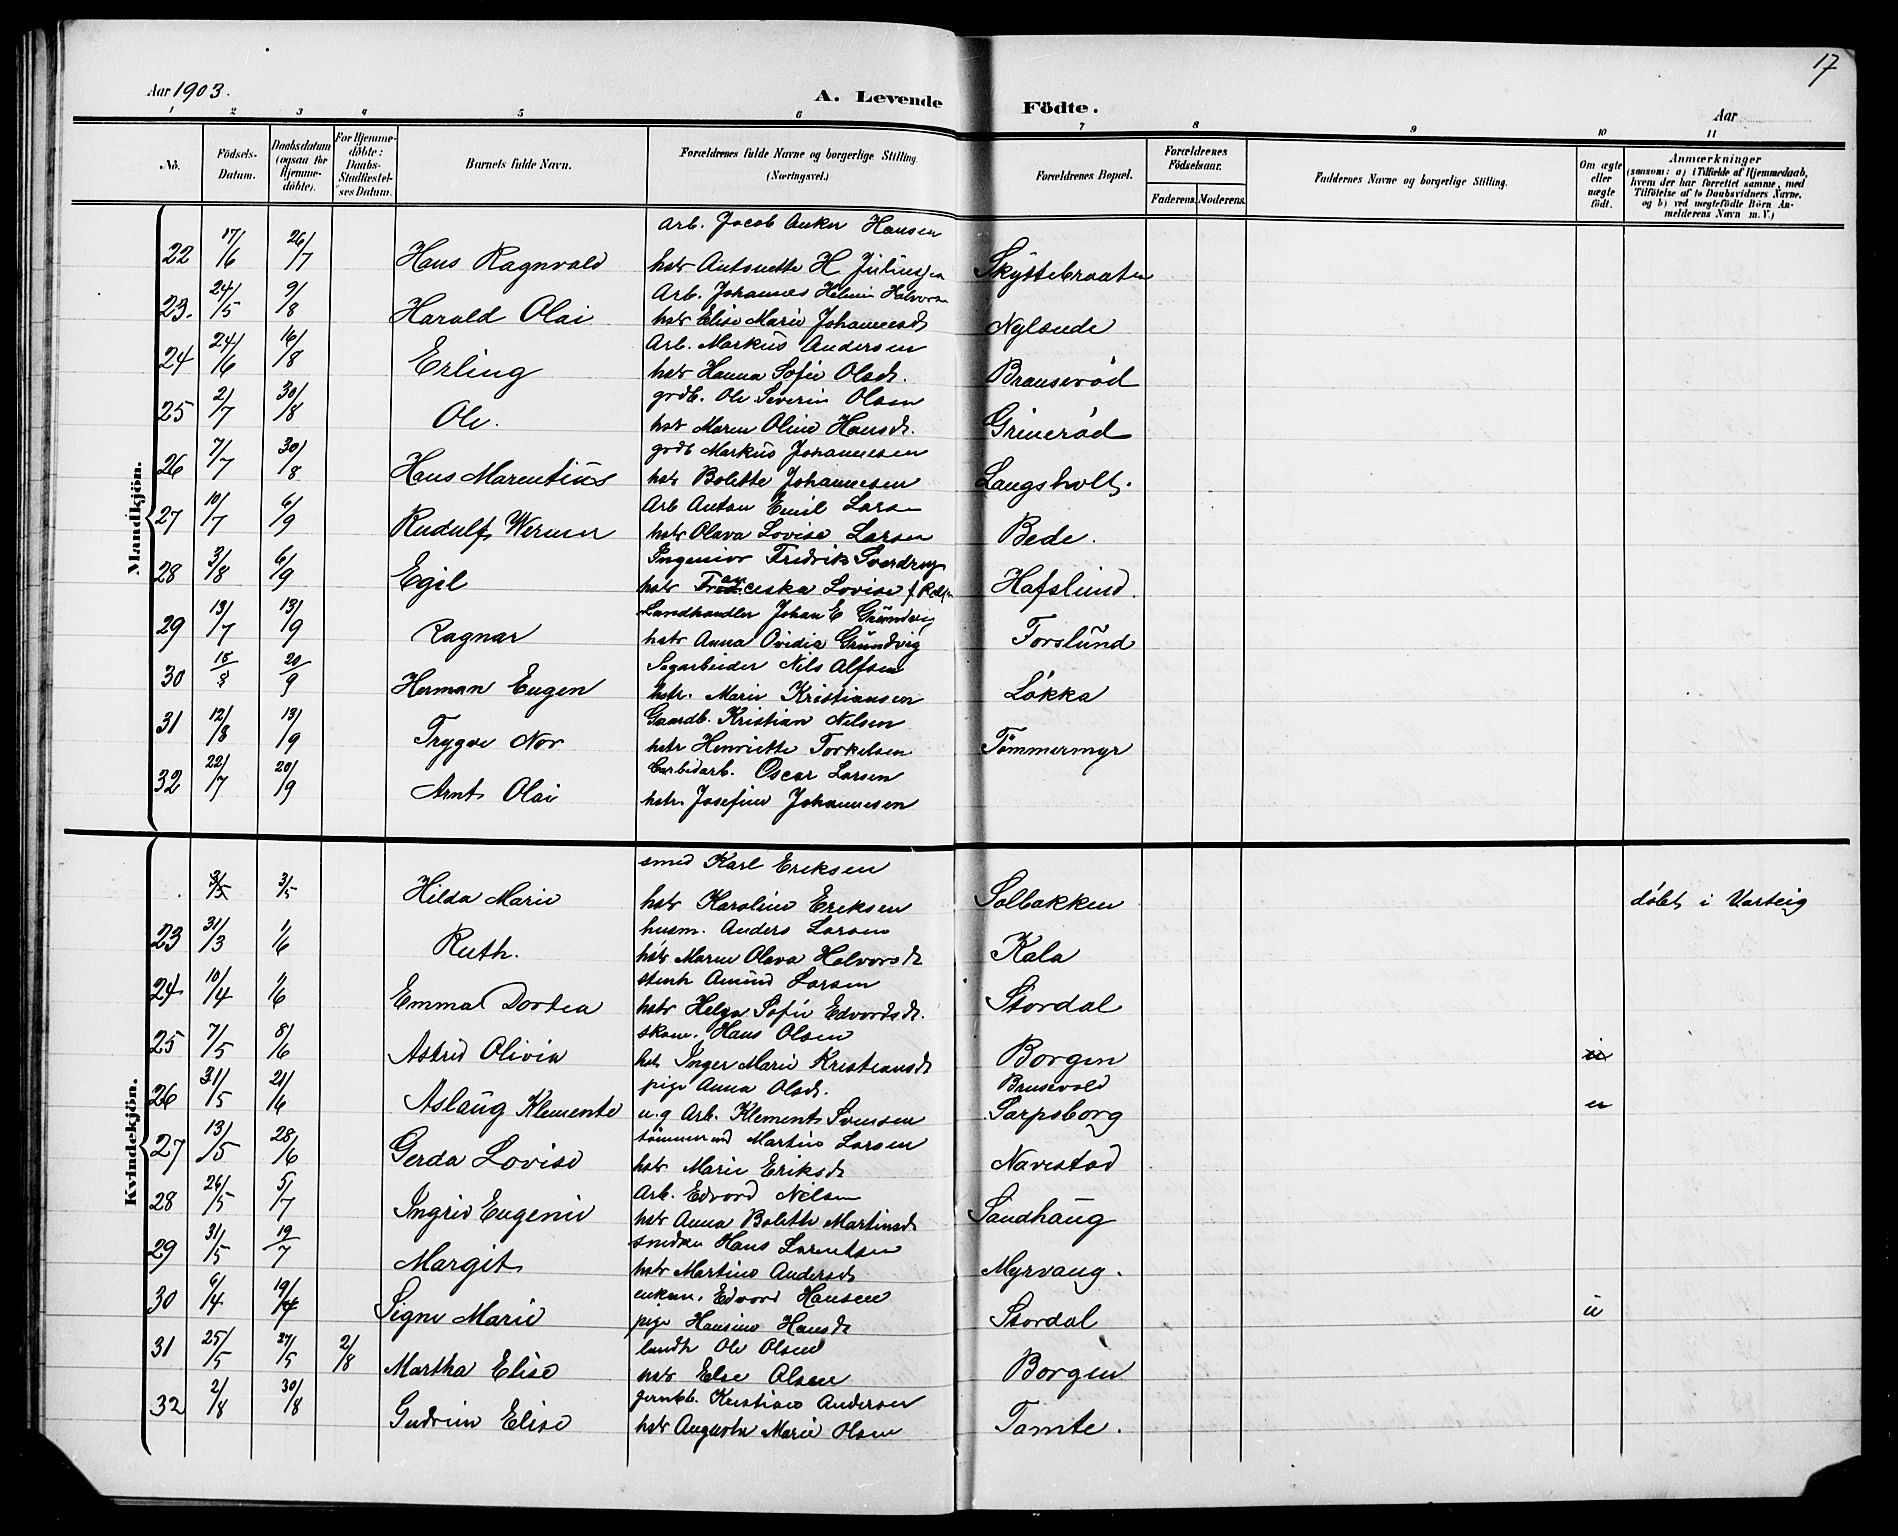 17
Aar 1903.
A. Levende Födte.
Aar
1 2 3 4 5 6 7 8 9 10 11
No.
Födsels-Datum.
Daabsdatum (ogsaa for Hjemmedöbte).
For Hjemmedöbte: Daabs-Stadfæstelses Datum.
Barnets fulde Navn.
Forældrenes fulde Navne og borgerlige Stilling. (Næringsvei.)
Forældrenes Bopæl.
Forældrenes Födselsaar.
Faderens. Moderens.
Faddernes Navne og borgerlige Stilling.
Om ægte eller uægte født.
Anmærkninger (saasom: a) i Tilfælde af Hjemmedaab, hvem der har forrettet samme, med Tilföielse af to Daabsvidners Navne, og b) ved uægtefödte Börn Anmelderens Navn m. V.)
Mandkjön.
Arb. Jacob Anker Hansen
22 17/6 26/7 Hans Ragnvald hstr Antonette H Juliusen Skyttebraaten
Arb. Johannes Helmin Halvorsen
23. 24/5 9/8 Harald Olai hstr Elise Marie Johannesdt Nylende
Arb. Markus Andersen
24 24/6 16/8 Erling hstr Hanna Sofie Olsdt. Brauserød
grdb. Ole Severin Olsen
25 2/7 30/8 Ole. hstr Maren Oline Hansdt. Grinerød
grdb Markus Johannesen
26 7/7 30/8 Hans Marentius hstr Bolette Johannesen Langsholt.
Arb Anton Emil Larsen
27 10/7 6/9 Rudulf Werner hstr Olava Lovise Larsen Bede.
Ingeniør Fredrik Sverdrup
28 3/8 6/9 Egil hstr Franceska Lovise f. Hafslund.
Landhandler Johan E Gründvig
29 13/7 13/9 Ragnar hstr Anna Ovidia Gründvig Torslund
Sagarbeider Nils Alfsen
30 20/9 Herman Eugen hstr. Marie Kristiansen Løkka
Gaardb. Kristian Nilsen
31 12/8 13/9 Trygve Nor hstr Henriette Torkelsen Tømmermyr
Carbidarb. Oscar Larsen
32 22/7 20/9 Arnt Olai hstr. Josefine Johannesen
Kvindekjön.
smed Karl Eriksen
3/5 3/5 Hilda Marie hstr Karoline Eriksen Solbakken døbt i Varteig
husm. Anders Larsen
23 31/3 1/6 Ruth. hstr Maren Olava Halvorsdt Kala
stenh Amund Larsen
24 10/4 1/6 Emma Dortea hstr Helga Sofie Edvardsdt. Stordal
skom. Hans Olsen
25 7/5 8/6 Astrid Olivia hstr Inger Marie Kristiansdt Borgen
pige Anna Olsdt. Brusevold
26 31/5 21/6 Aslaug Klemente u.g Arb. Klement Svensen Sarpsborg u
tømmermd Martin Larsen
27 13/5 28/6 Gerda Lovise hstr Marie Eriksdt Navestad
Arb. Edvard Nilsen
28 26/5 5/7 Ingrid Eugenie hstr Anna Bolette Martinsdt Sandhaug
snidker Hans Larentsen
29 31/5 19/7 Margit hstr Martine Andersdt Myrvang.
enkem. Edvard Hansen
30 6/4 19/4 Signe Marie pige Hansine Hansdt Stordal u
landh Ole Olsen
31 25/5 27/5 2/8 Martha Elise hstr Else Olsen Borgen
jernbb. Kristian Andersen
32 2/8 30/8 Gudrun Elise hstr Augusta Marie Olsen Tomte.